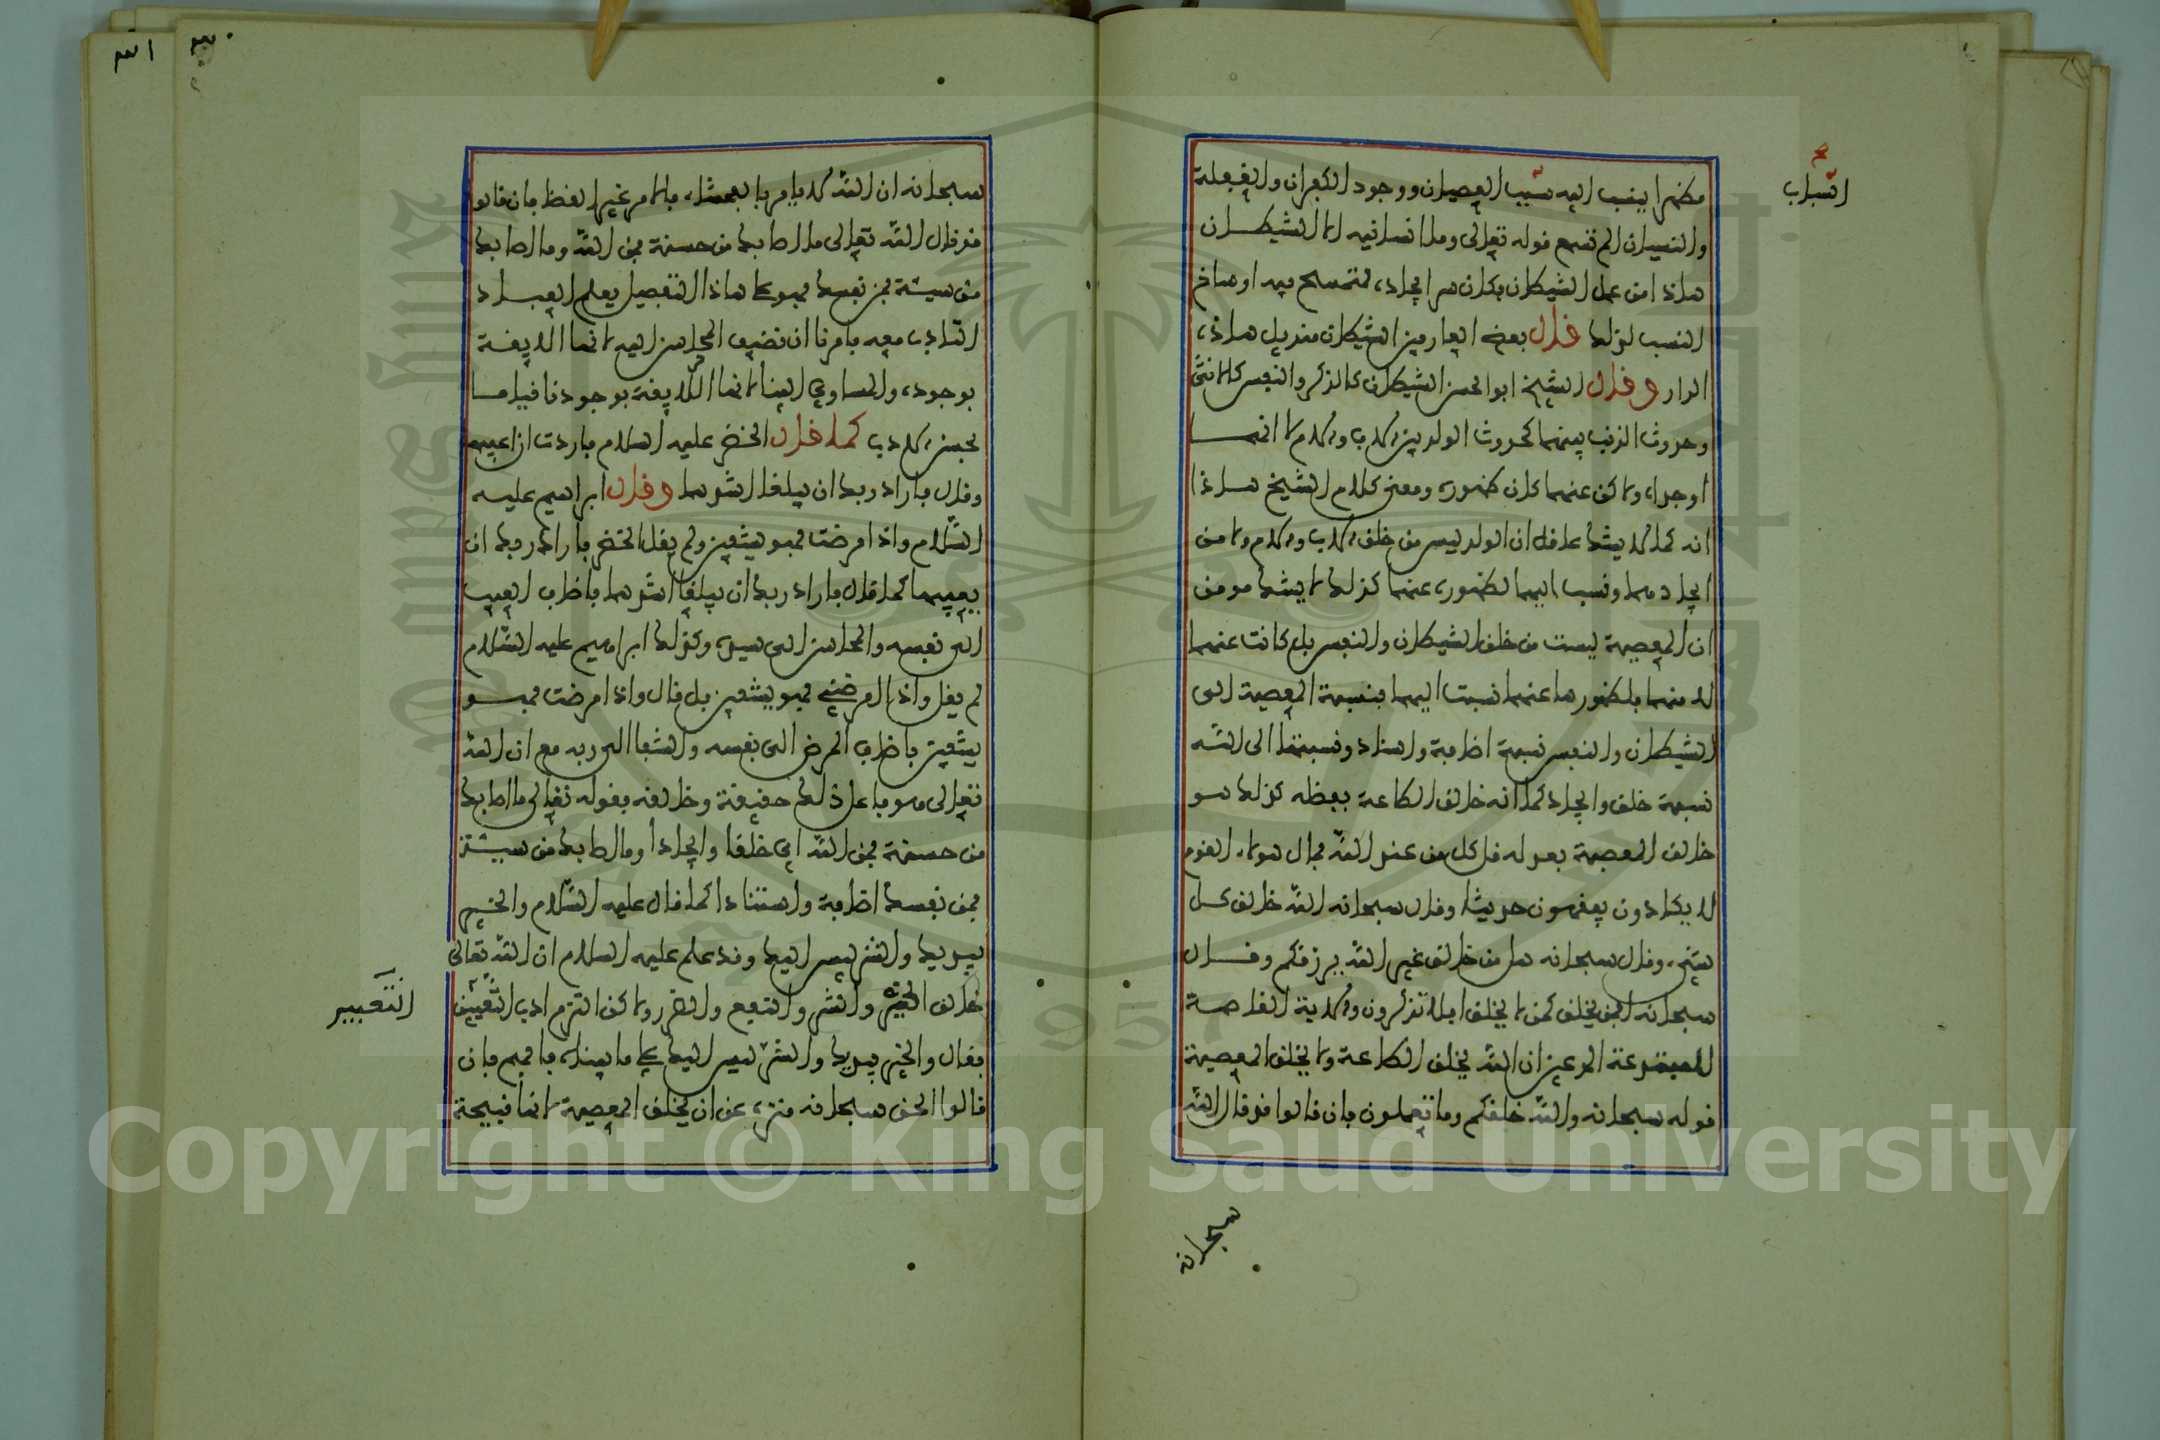 مظهرا ينسب اليه سبب العصيان ووجود الكفران والغفلة
والنسيان الم تسمع قوله تعالى وما انسانيه الا الشيطان
هاذا من عمل الشيطان فكان سر ايجاده لتمسح فيه اوساخ
النسب لذلك قال بعض العارفين الشيطان منديل هاذه
الدار وقال الشيخ ابو الحسن الشيطان كالذكر والنفس كالانثى
وحدوث الذنب بينهما كحدوث الولد بين الاب والام لا انهما
اوجداه ولاكن عنهما كان ظهوره ومعنى كلام الشيخ هاذا
انه كما لا يشك عاقل ان الولد ليس من خلق الاب والام ولا من
ايجادهما ونسب اليهما لظهوره عنهما كذلك لا يشك مومن
ان المعصية ليست من خلق الشيطان والنفس بل كانت عنهما
لا منهما فلظهورها عنهما نسبت اليهما فنسبة المعصية الى
الشيطان والنفس نسبة اضافة واسناد ونسبتها الى الله
نسبة خلق وايجاد كما انه خالق الطاعة بفضله كذلك هو
خالق المعصية بعدله قل كل من عند الله فمال هولاء القوم
لا يكادون يفقهون حديثا وقال سبحانه الله خالق كل
شيء وقال سبحانه هل من خالق غير الله يرزقكم وقال
سبحانه افمن يخلق كمن لا يخلق افلا تذكرون والاية القاصمة
للمبتدعة المدعين ان الله يخلق الطاعة ولا يخلق المعصية
قوله سبحانه والله خلقكم وما تعملون فان قالوا قد قال الله
السباب
سبحانه
٣٠
٣١
سبحانه ان الله لا يامر بالفحشاء فالامر غير القضا فان قالوا
قد قال الله تعالى ما اصابك من حسنة فمن الله وما اصابك
من سيئة فمن نفسك فهو على هاذا التفصيل يعلم العباد
التادب معه فامرنا ان نضيف المحاسن اليه لانها اللايقة
بوجوده والمساوي الينا لانها اللايقة بوجودنا قياما
بحسن الادب كما قال الخضر عليه السلام فاردت ان اعيبها
وقال فاراد ربك ان يبلغا اشدهما وقال ابراهيم عليه
السلام واذا مرضت فهو يشفين ولم يقل الخضر فاراد ربك ان
يعيبها كما قال فاراد ربك ان يبلغا اشدهما فاضاف العيب
الى نفسه والمحاسن الى سيده وكذلك ابراهيم عليه السلام
لم يقل واذا امرضني فهو يشفين بل قال واذا مرضت فهو
يشفين فاضاف المرض الى نفسه والشفا الى ربه مع ان الله
تعالى هو فاعل ذلك حقيقة وخالقه فقوله تعالى ما اصابك
من حسنة فمن الله اي خلقا وايجادا وما اصابك من سيئة
فمن نفسك اضافة واسنادا كما قال عليه السلام والخير
بيديك والشر ليس اليك وقد علم عليه السلام ان الله تعالى
خالق الخير والشر والنفع والضر ولاكن التزم ادب التعبير
فقال والخير بيديك والشر ليس اليك على ما بيناه فافهم فان
قالوا الحق سبحانه منزه عن ان يخلق المعصية لانها قبيحة
التعبير
Copyright © King Saud University
1957